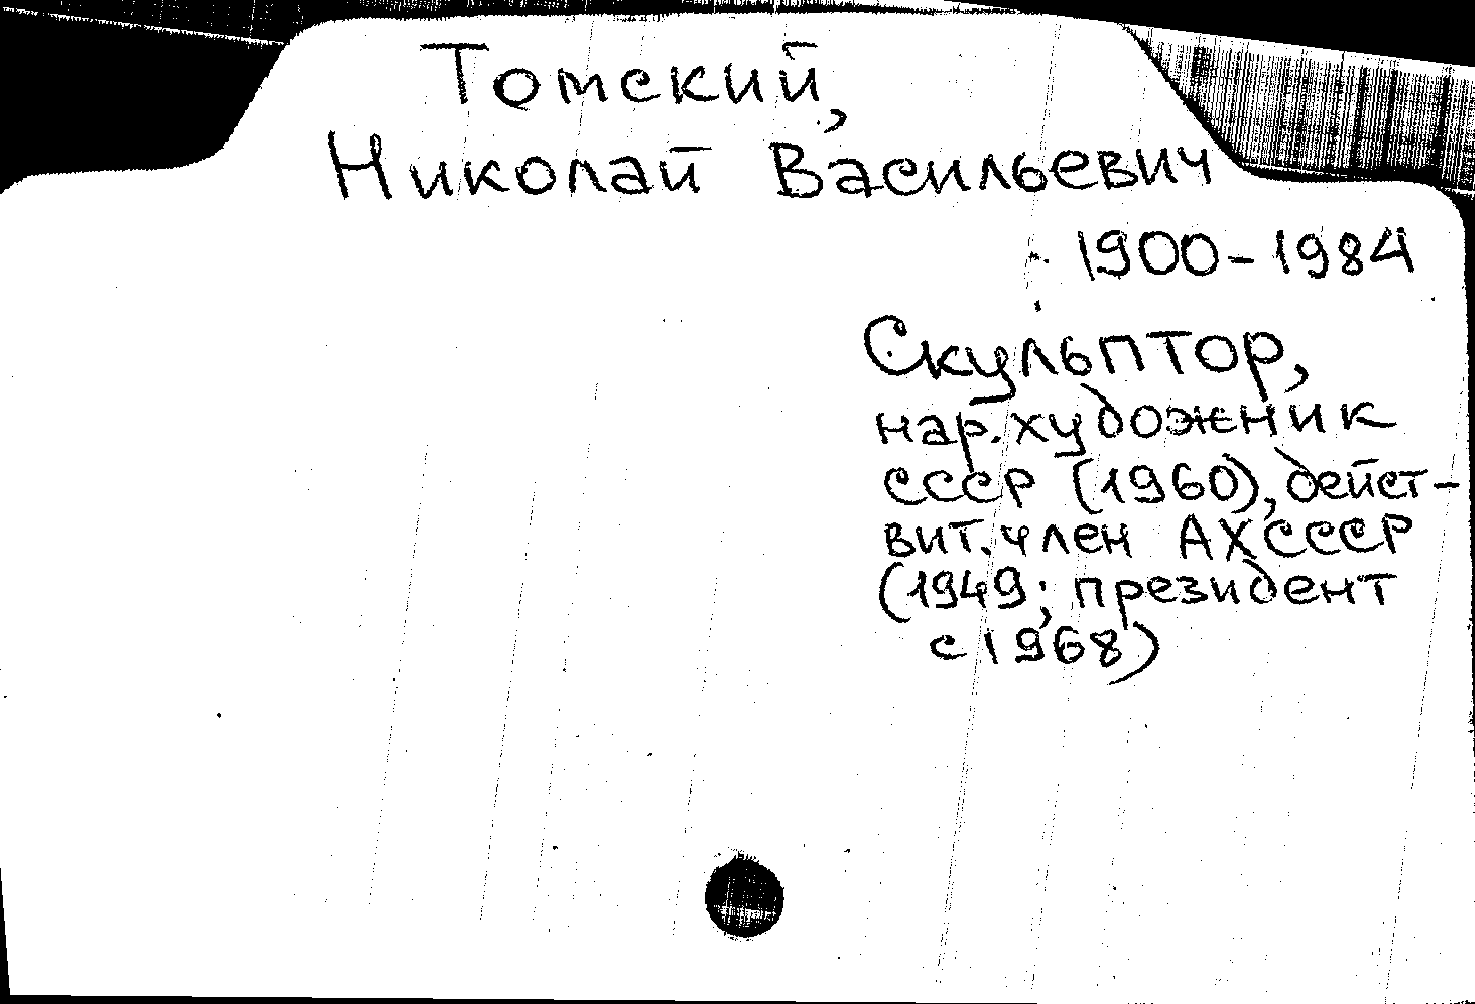 Томский,
Николай Васильевич
1900-1984
Скульптор,
нар. художник
СССР (1960), дейст-
вит. член АХ СССР
(1949; президент
с 1968)